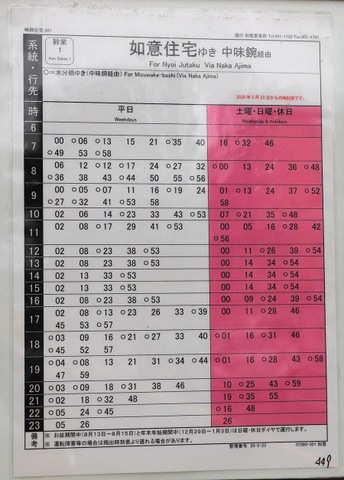 幹栄
1
Kan Sakae 1
如意住宅ゆき 中味鋺経由
For Nyoi Jutaku Via Naka Ajima
○=水分橋ゆき(中味鋺経由) For Mizuwake-bashi (Via Naka Ajima)
系統・行先
時
平日
Weekdays
土曜・日曜・休日
Weekends & Holidays
6
7 00 ○06 ○13 15 21 ○35 40 16 ○32 46
○49 53 ○58
8 ○06 ○12 ○17 ○24 ○27 ○32 ○00 13 24 36 ○48
○36 38 ○43 ○44 50 55 ○56
9 00 05 ○12 11 ○16 ○19 24 ○01 ○13 ○24 ○37 ○52
○27 ○32 41 ○53 58
10 ○02 06 ○14 ○23 33 43 ○53 ○07 ○21 35 ○48
11 02 08 ○17 29 41 ○53 00 05 16 ○28 42
○56
12 02 08 ○23 38 ○53 00 11 ○26 39 ○54
13 02 08 ○23 38 ○53 00 14 34 ○54
14 02 13 33 ○53 00 14 34 ○54
15 02 13 33 ○53 00 14 34 ○54
16 02 08 ○23 38 ○53 00 09 ○24 39 ○54
17 02 08 ○13 ○23 26 33 ○39 00 ○13 26 ○39
45 53 ○57
18 ○03 09 15 ○21 27 33 40 ○01 16 ○31 46
○45 52 57
19 ○04 ○08 13 21 ○31 ○34 ○44 ○01 16 28 ○43 ○58
47 59
20 ○03 ○09 18 ○31 38 46 10 ○25 43 ○59
21 ○02 18 ○32 48 19 ○35 55
22 ○05 24 ○45 ○16 48
23 05 26 26
備考
※ お盆期間中(8月13日〜8月15日)と年末年始期間中(12月29日〜1月3日)は日曜・休日ダイヤで運行します。
※ 運転障害等の場合は掲出時刻表より遅れる場合があります。
449